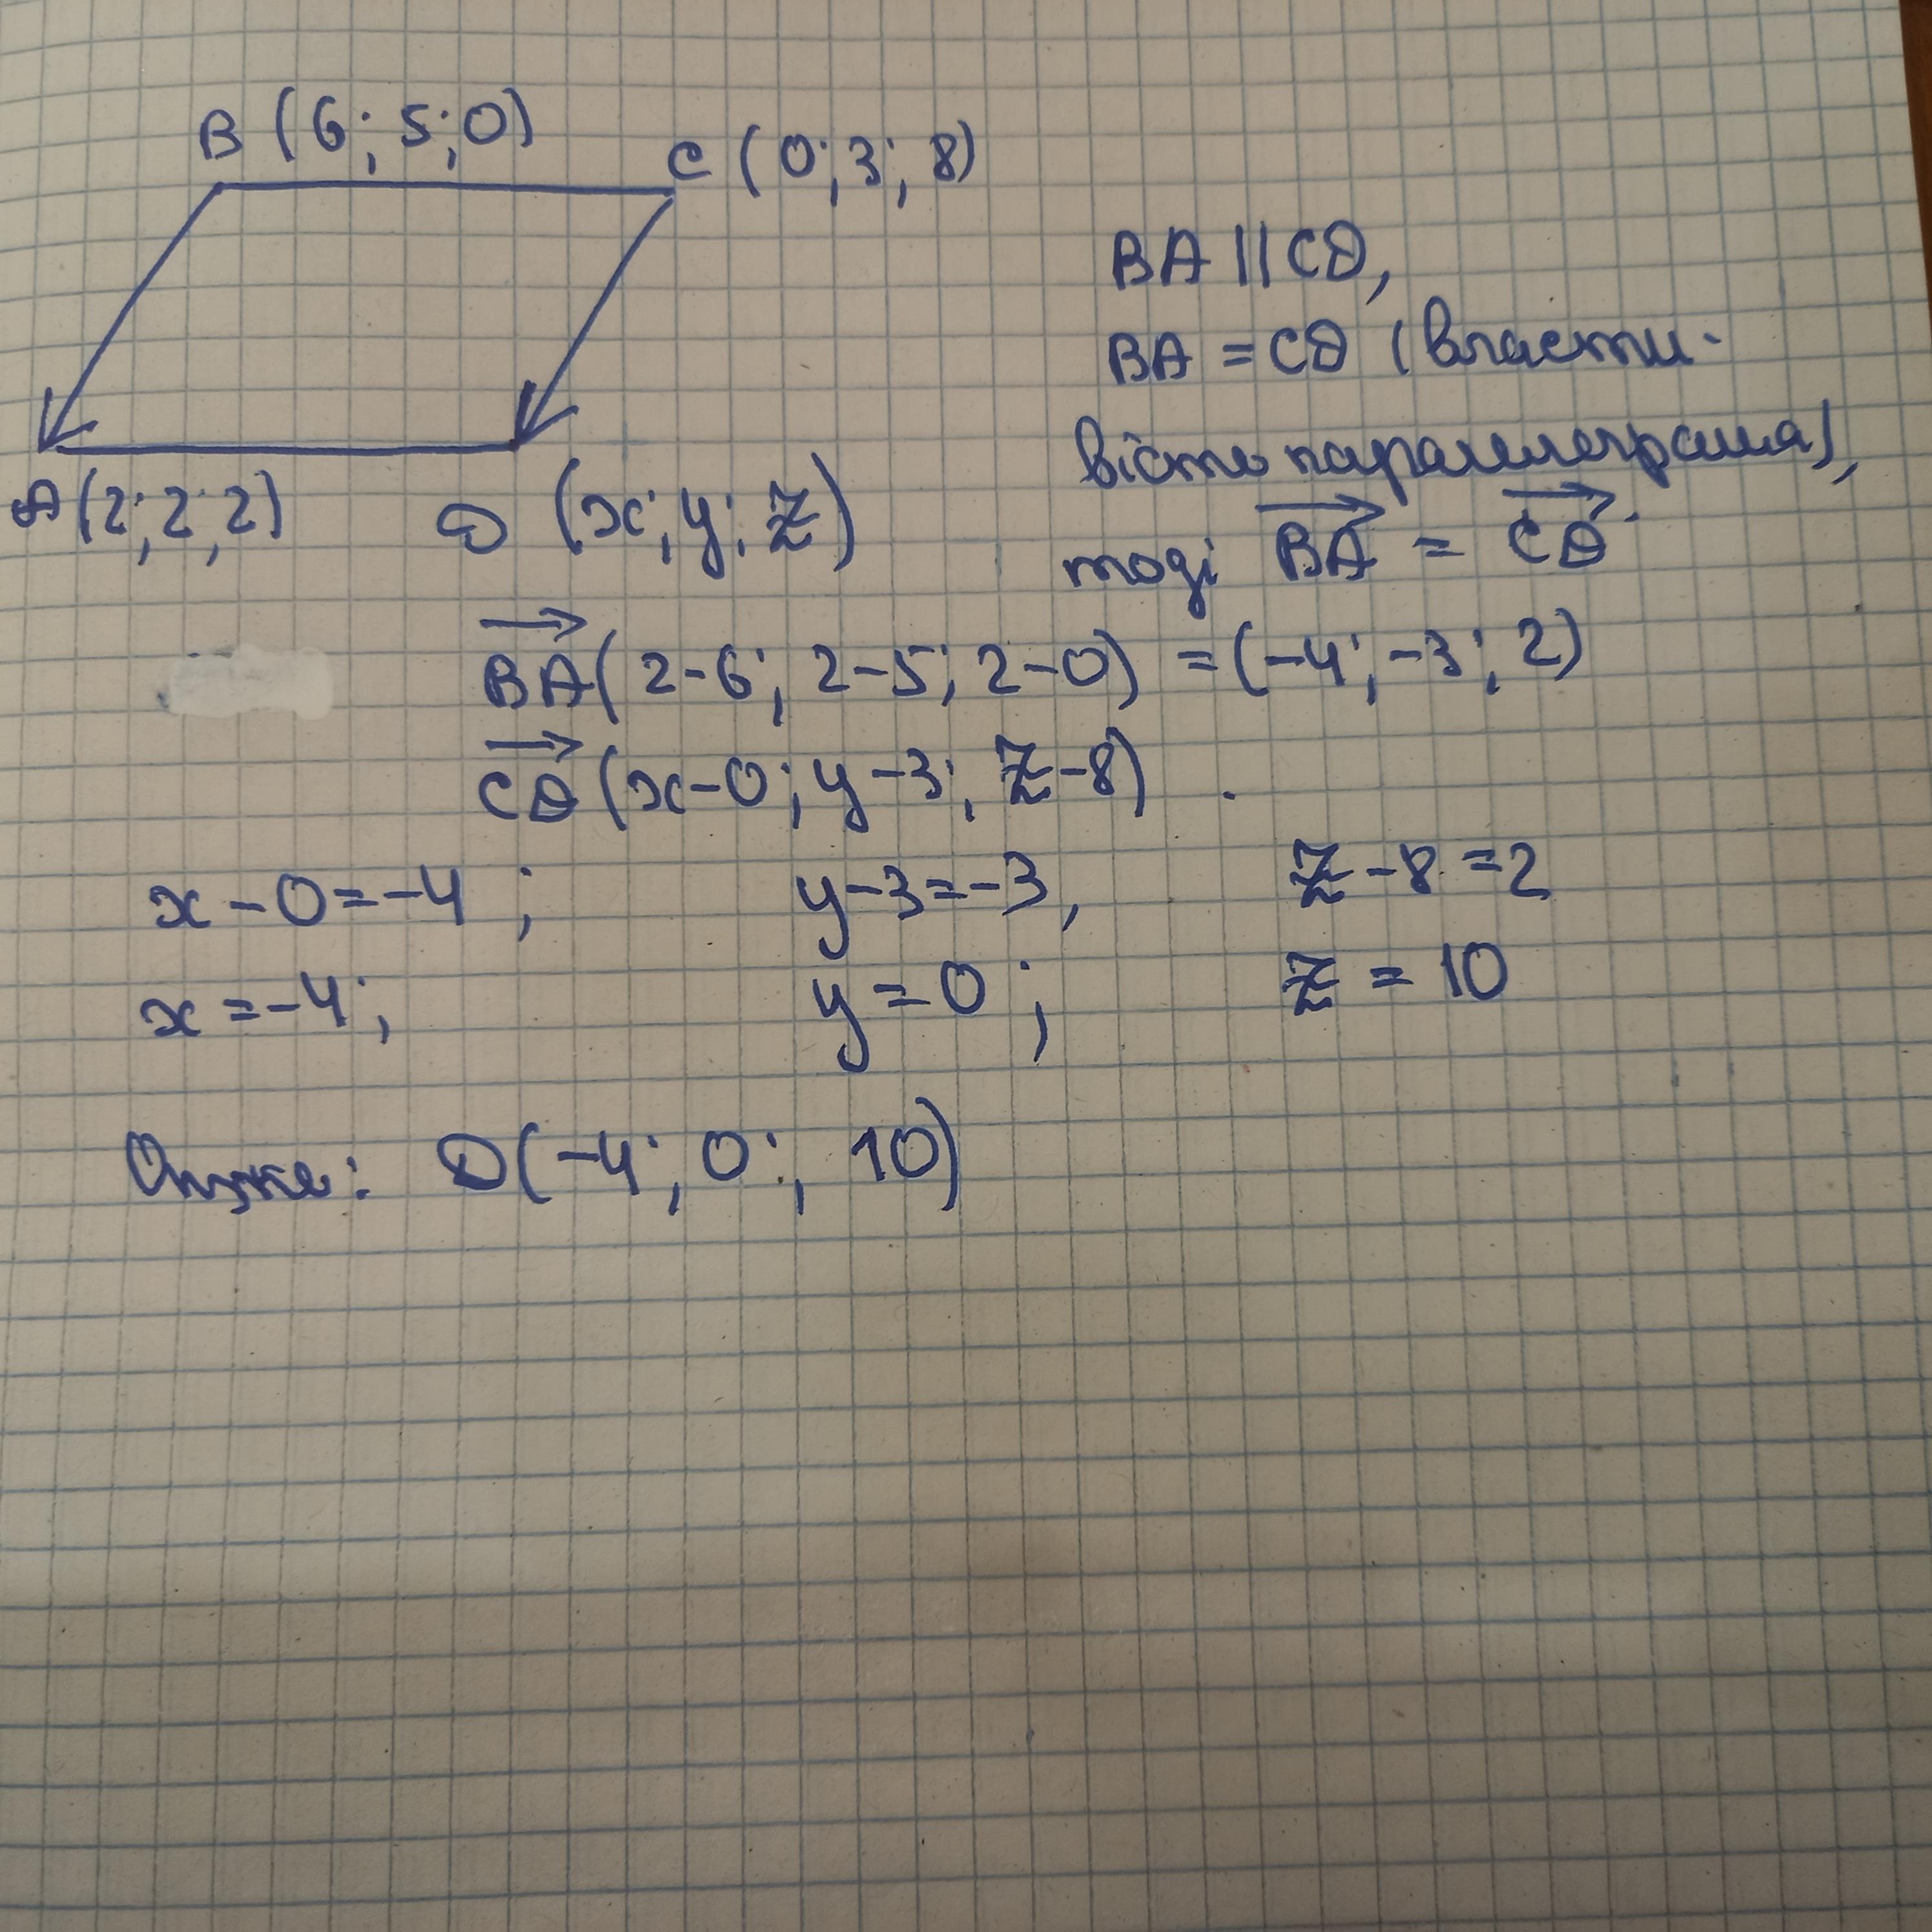 B (6; 5; 0)
C (0; 3; 8)
A (2; 2; 2)
D (x; y; z)
BA || CD,
BA = CD (власти-
вість паралелограма),
тоді BA = CD.
BA (2-6; 2-5; 2-0) = (-4; -3; 2)
CD (x-0; y-3; z-8)
x - 0 = -4 ; y - 3 = -3, z - 8 = 2
x = -4; y = 0 ; z = 10
Отже: D (-4; 0; 10)